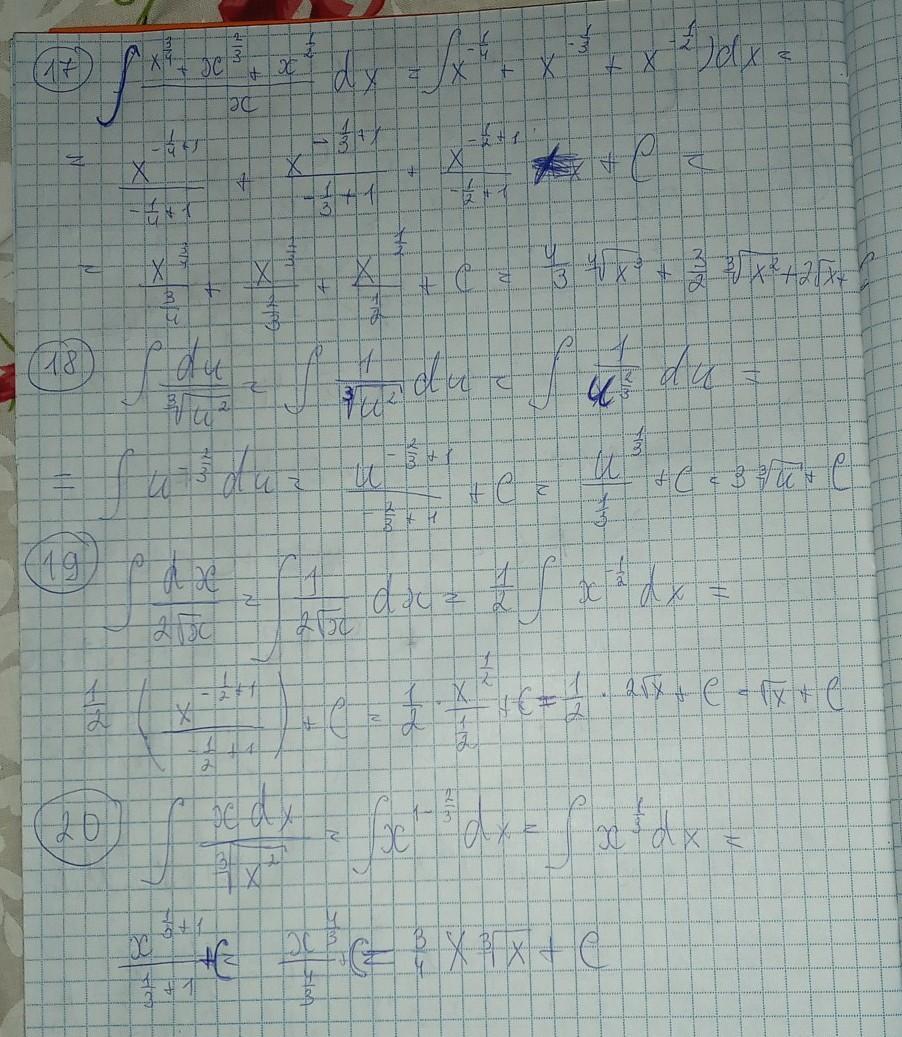 17 ∫ (x^(3/4) + x^(2/3) + x^(1/2))/x dx = ∫ x^(-1/4) + x^(-1/3) + x^(-1/2) ) dx =
= x^(-1/4+1)/(-1/4+1) + x^(-1/3+1)/(-1/3+1) + x^(-1/2+1)/(-1/2+1) + C =
= x^(3/4)/(3/4) + x^(2/3)/(2/3) + x^(1/2)/(1/2) + C = 4/3 ∜(x^3) + 3/2 ∛(x^2) + 2√x + C
18 ∫ du/∛(u^2) = ∫ 1/∛(u^2) du = ∫ 1/u^(2/3) du =
= ∫ u^(-2/3) du = u^(-2/3+1)/(-2/3+1) + C = u^(1/3)/(1/3) + C = 3 ∛u + C
19 ∫ dx/(2√x) = ∫ 1/(2√x) dx = 1/2 ∫ x^(-1/2) dx =
1/2 ( x^(-1/2+1)/(-1/2+1) ) + C = 1/2 · x^(1/2)/(1/2) + C = 1/2 · 2√x + C = √x + C
20 ∫ x dx/∛(x^2) = ∫ x^(1-2/3) dx = ∫ x^(1/3) dx =
x^(1/3+1)/(1/3+1) + C = x^(4/3)/(4/3) + C = 3/4 x ∛x + C